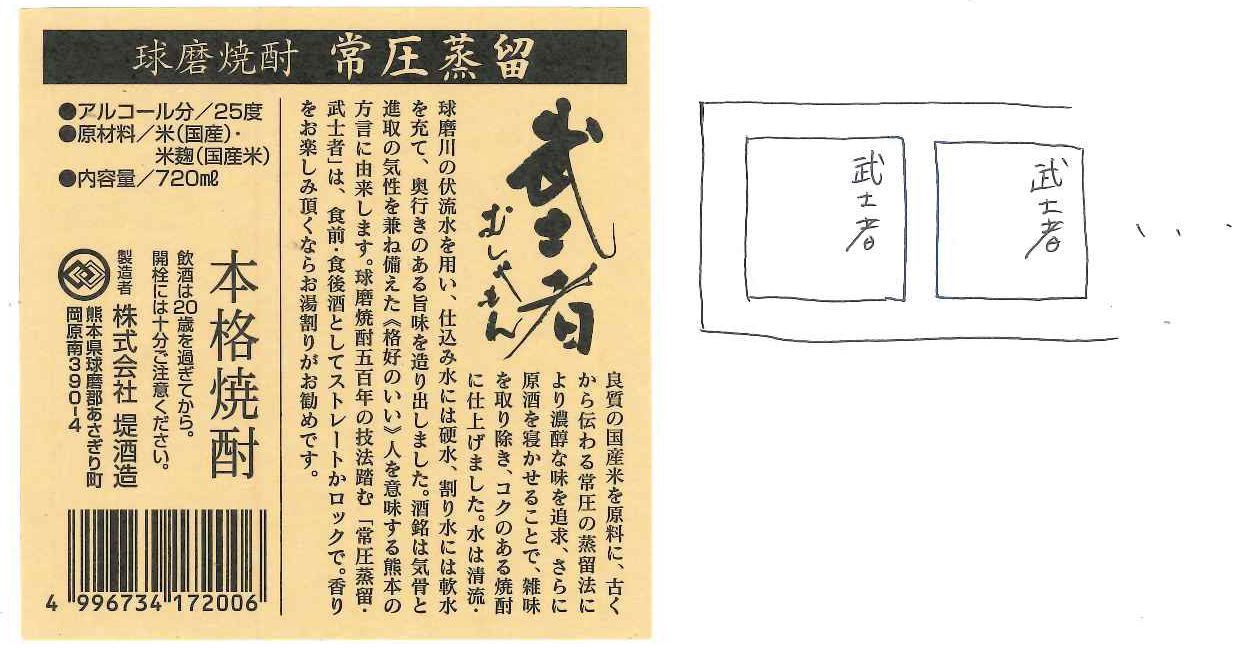 球磨焼酎 常圧蒸留
武士者
むしゃもん
良質の国産米を原料に、古く
から伝わる常圧の蒸留法に
より濃醇な味を追求、さらに
原酒を寝かせることで、雑味
を取り除き、コクのある焼酎
に仕上げました。水は清流・
球磨川の伏流水を用い、仕込み水には硬水、割り水には軟水
を充て、奥行きのある旨味を造り出しました。酒銘は気骨と
進取の気性を兼ね備えた《格好のいい》人を意味する熊本の
方言に由来します。球磨焼酎五百年の技法踏む「常圧蒸留・
武士者」は、食前・食後酒としてストレートかロックで。香り
をお楽しみ頂くならお湯割りがお勧めです。
●アルコール分／25度
●原材料／米(国産)・
米麹(国産米)
●内容量／720㎖
本格焼酎
飲酒は20歳を過ぎてから。
開栓には十分ご注意ください。
製造者 株式会社 堤酒造
熊本県球磨郡あさぎり町
岡原南390-4
4 996734 172006
武士者
武士者